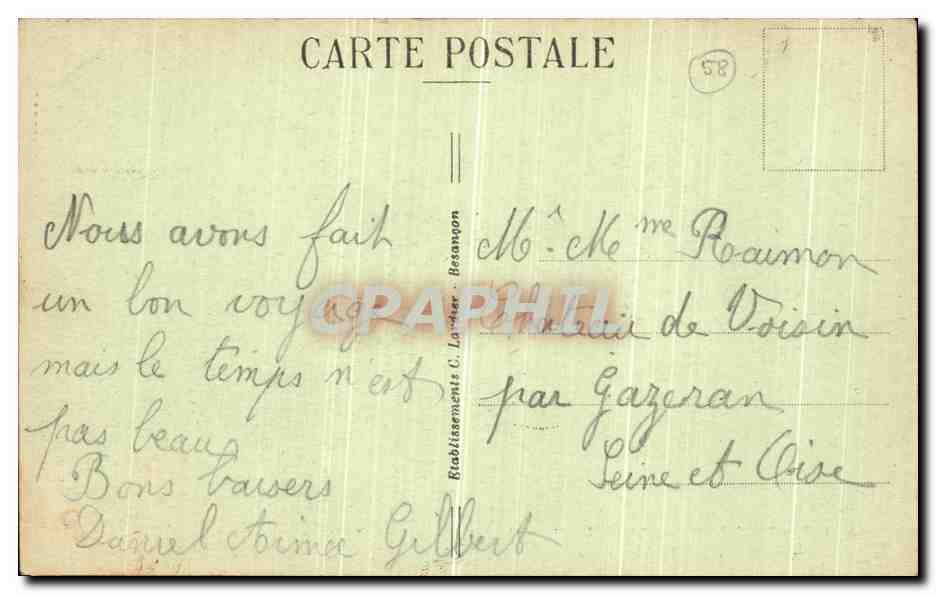 CARTE POSTALE
58
Nous avons fait
un bon voyage
mais le temps n'est
pas beau
Bons baisers
Daniel Aimée Gilbert
Etablissements C. Lardier - Besançon
CPAPHIL
Mr. Mme Raimon
Chateau de Voisin
par Gazeran
Seine et Oise